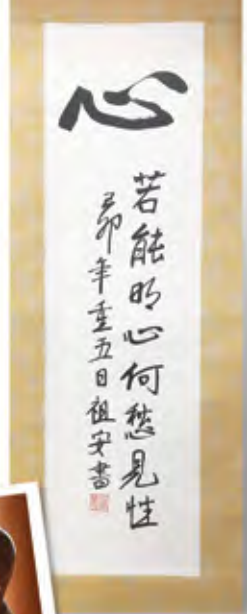 心
若能明心何愁見性
辛卯年重五日祖安書